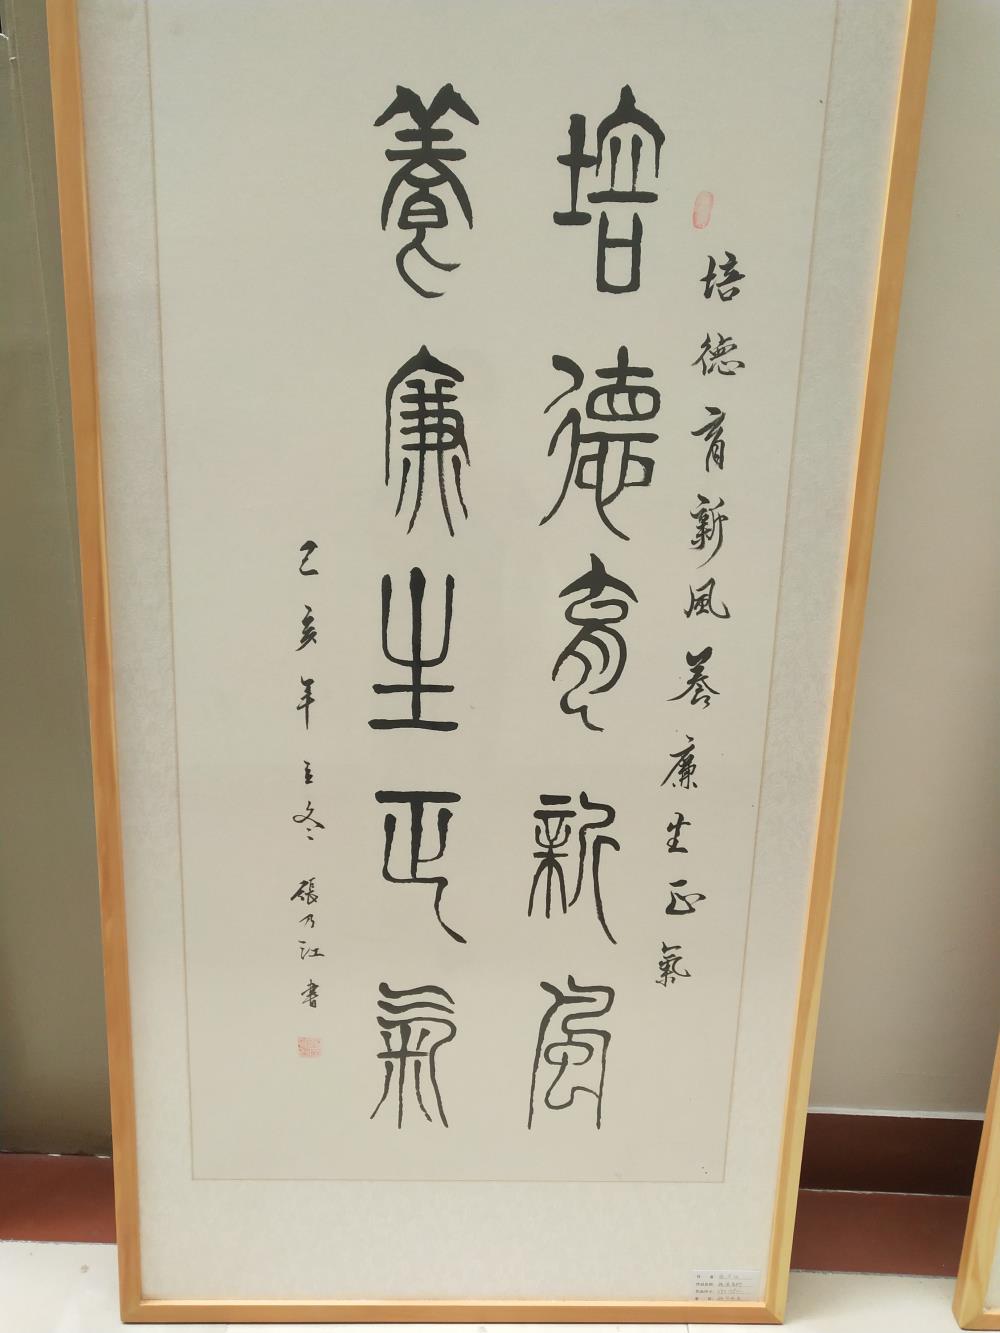 培德育新風養廉生正氣
培德育新風
養廉生正氣
己亥年立冬張乃江書